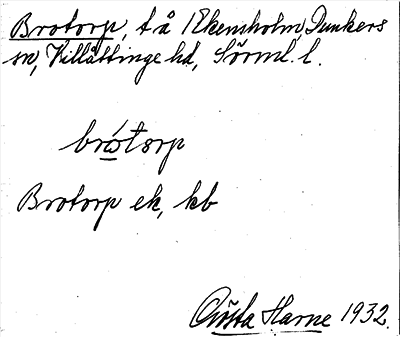 Brotorp, t å Ekensholm, Dunkers
sn, Villåttinge hd, Sörml. l.
brótorp
Brotorp ek, kb
Gösta Harne 1932.